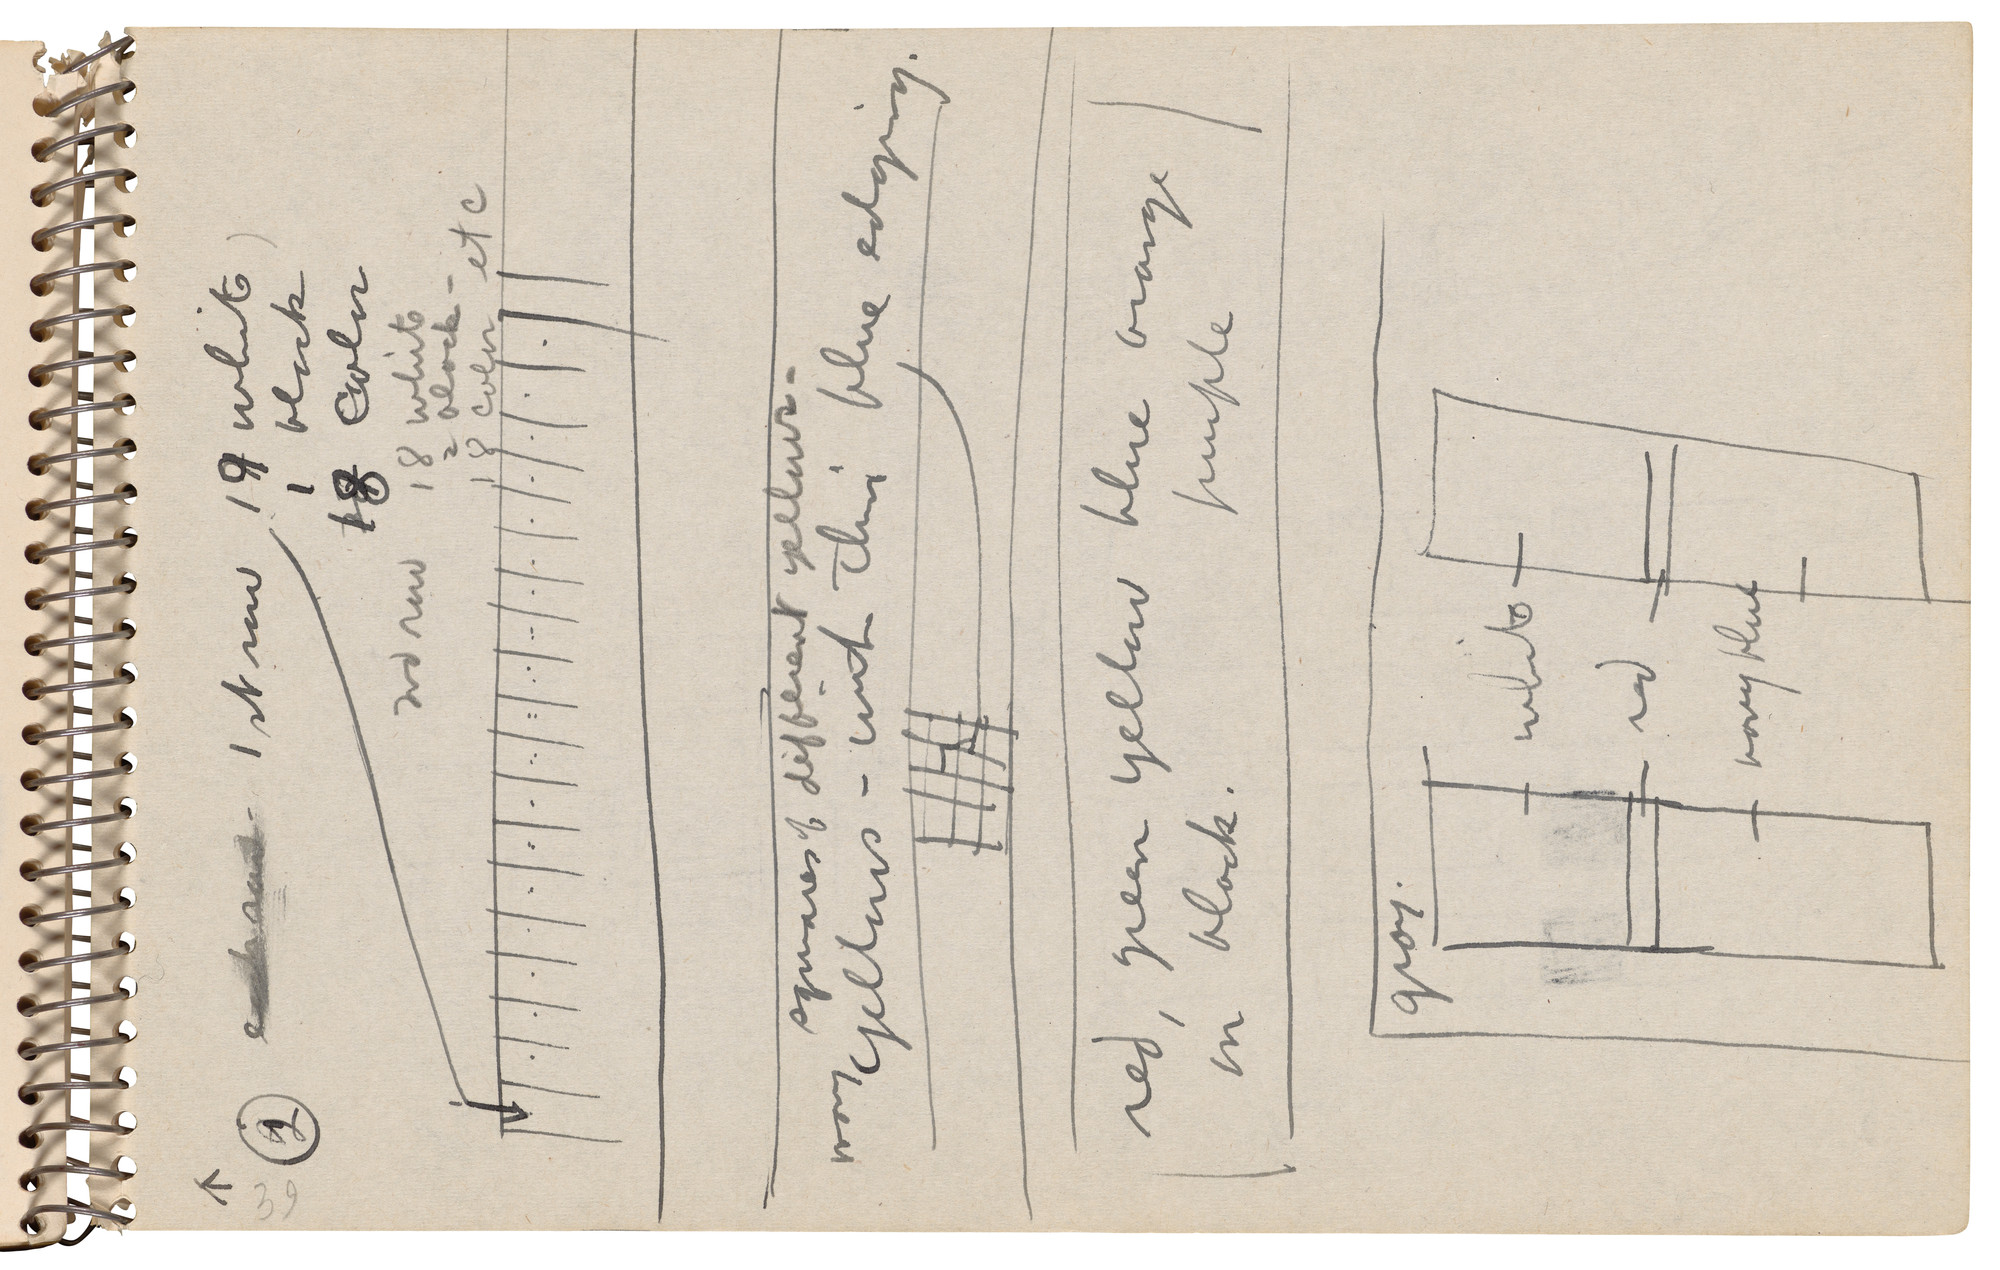 39
1st row 19 white
1 black
18 color
2nd row 18 white
2 black -
18 color - etc
squares of different yellows -
many yellows - with thin blue edging.
red, green yellow blue orange
on black. purple
gray.
white
red
navy blue